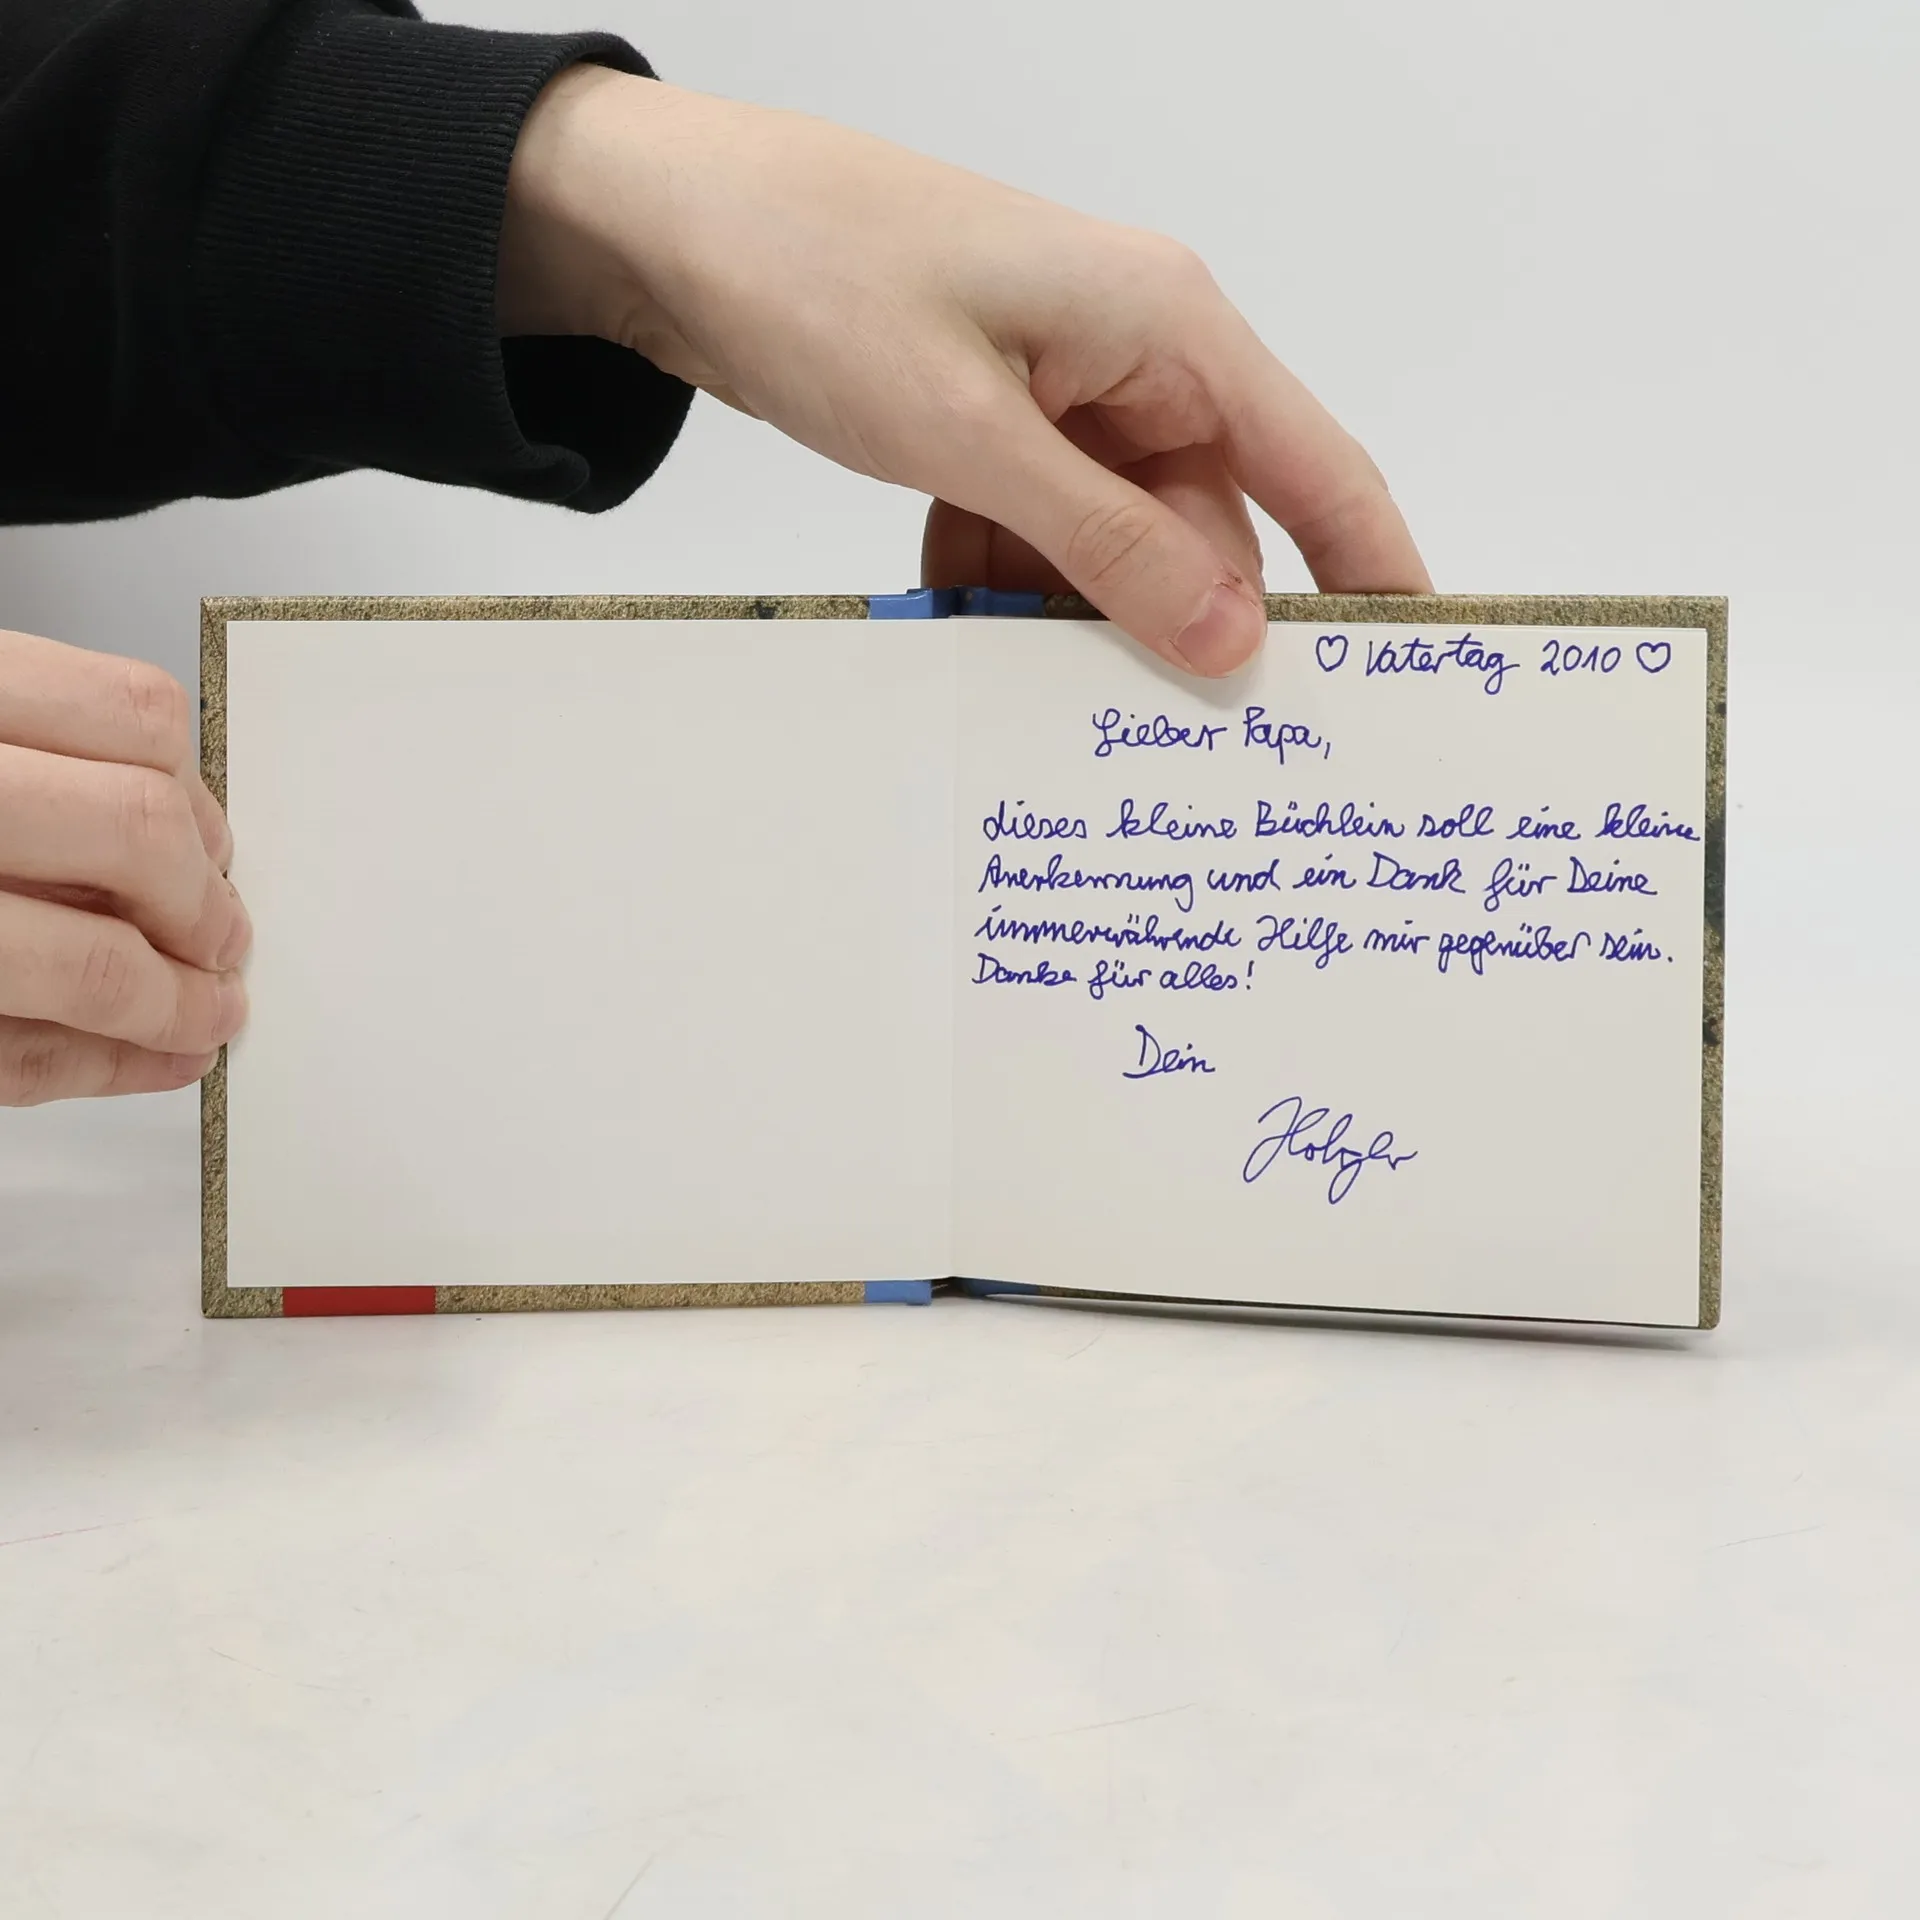 ♡ Vatertag 2010 ♡
Lieber Papa,
dieses kleine Büchlein soll eine kleine
Anerkennung und ein Dank für Deine
immerwährende Hilfe mir gegenüber sein.
Danke für alles!
Dein
Holger